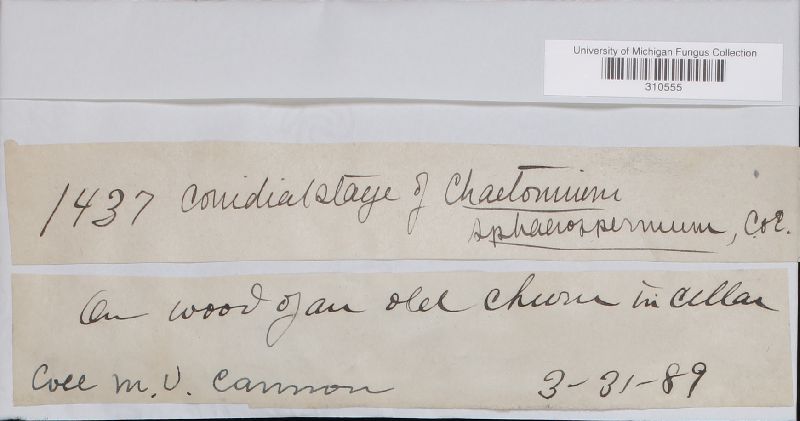 University of Michigan Fungus Collection
310555
1437 conidial stage of Chaetomium
sphaerospermum, C&E.
On wood of an old churn in cellar
Coll M. V. Cannon 3-31-89